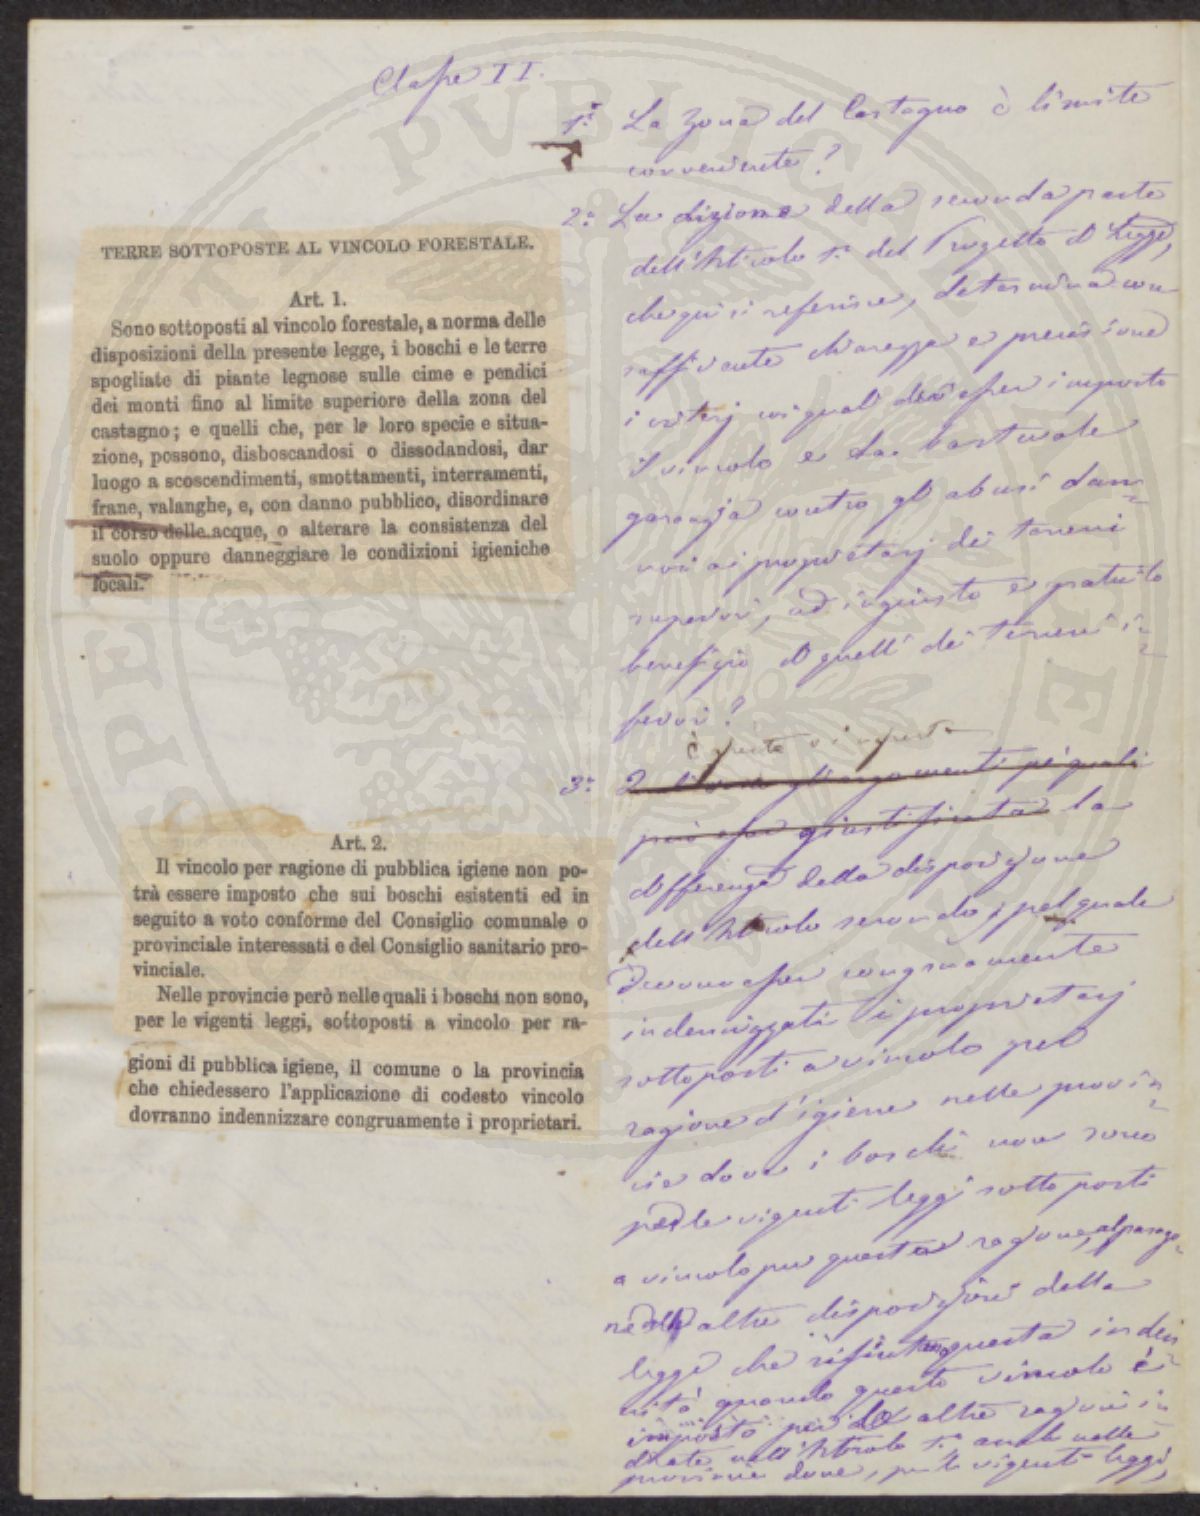 Classe II.
TERRE SOTTOPOSTE AL VINCOLO FORESTALE.
Art. 1.
Sono sottoposti al vincolo forestale, a norma delle
disposizioni della presente legge, i boschi e le terre
spogliate di piante legnose sulle cime e pendici
dei monti fino al limite superiore della zona del
castagno; e quelli che, per le loro specie e situa-
zione, possono, disboscandosi o dissodandosi, dar
luogo a scoscendimenti, smottamenti, interramenti,
frane, valanghe, e, con danno pubblico, disordinare
il corso delle acque, o alterare la consistenza del
suolo oppure danneggiare le condizioni igieniche
locali.
Art. 2.
Il vincolo per ragione di pubblica igiene non po-
trà essere imposto che sui boschi esistenti ed in
seguito a voto conforme del Consiglio comunale o
provinciale interessati e del Consiglio sanitario pro-
vinciale.
Nelle provincie però nelle quali i boschi non sono,
per le vigenti leggi, sottoposti a vincolo per ra-
gioni di pubblica igiene, il comune o la provincia
che chiedessero l'applicazione di codesto vincolo
dovranno indennizzare congruamente i proprietari.
1.° La zona del Castagno è limite
conveniente?
2.° La dizione della seconda parte
dell'Articolo 1.° del Progetto di legge,
che qui si riferisce, determina con
sufficiente chiarezza e precisione
i criterj coi quali dev'esser imposto
il vincolo e dà bastevole
garanzia contro gli abusi dan-
nosi ai proprietarj dei terreni
superiori, ad ingiusto e gratuito
benefizio di quelli dei terreni in-
feriori?
3.° giustificata la
differenza della disposizione
dell'Articolo secondo, pel quale
devono esser congruamente
indennizzati i proprietarj
sottoposti a vincolo per
ragione d'igiene nelle provin-
cie dove i boschi non sono
per le vigenti leggi sottoposti
a vincolo per questa ragione, al parago-
ne altre disposizioni della
legge che rifiutano questa inden-
nità quando questo vincolo è
imposto per le altre ragioni in-
dicate nell'Articolo 1.° anche nelle
provincie dove, per le vigenti leggi,